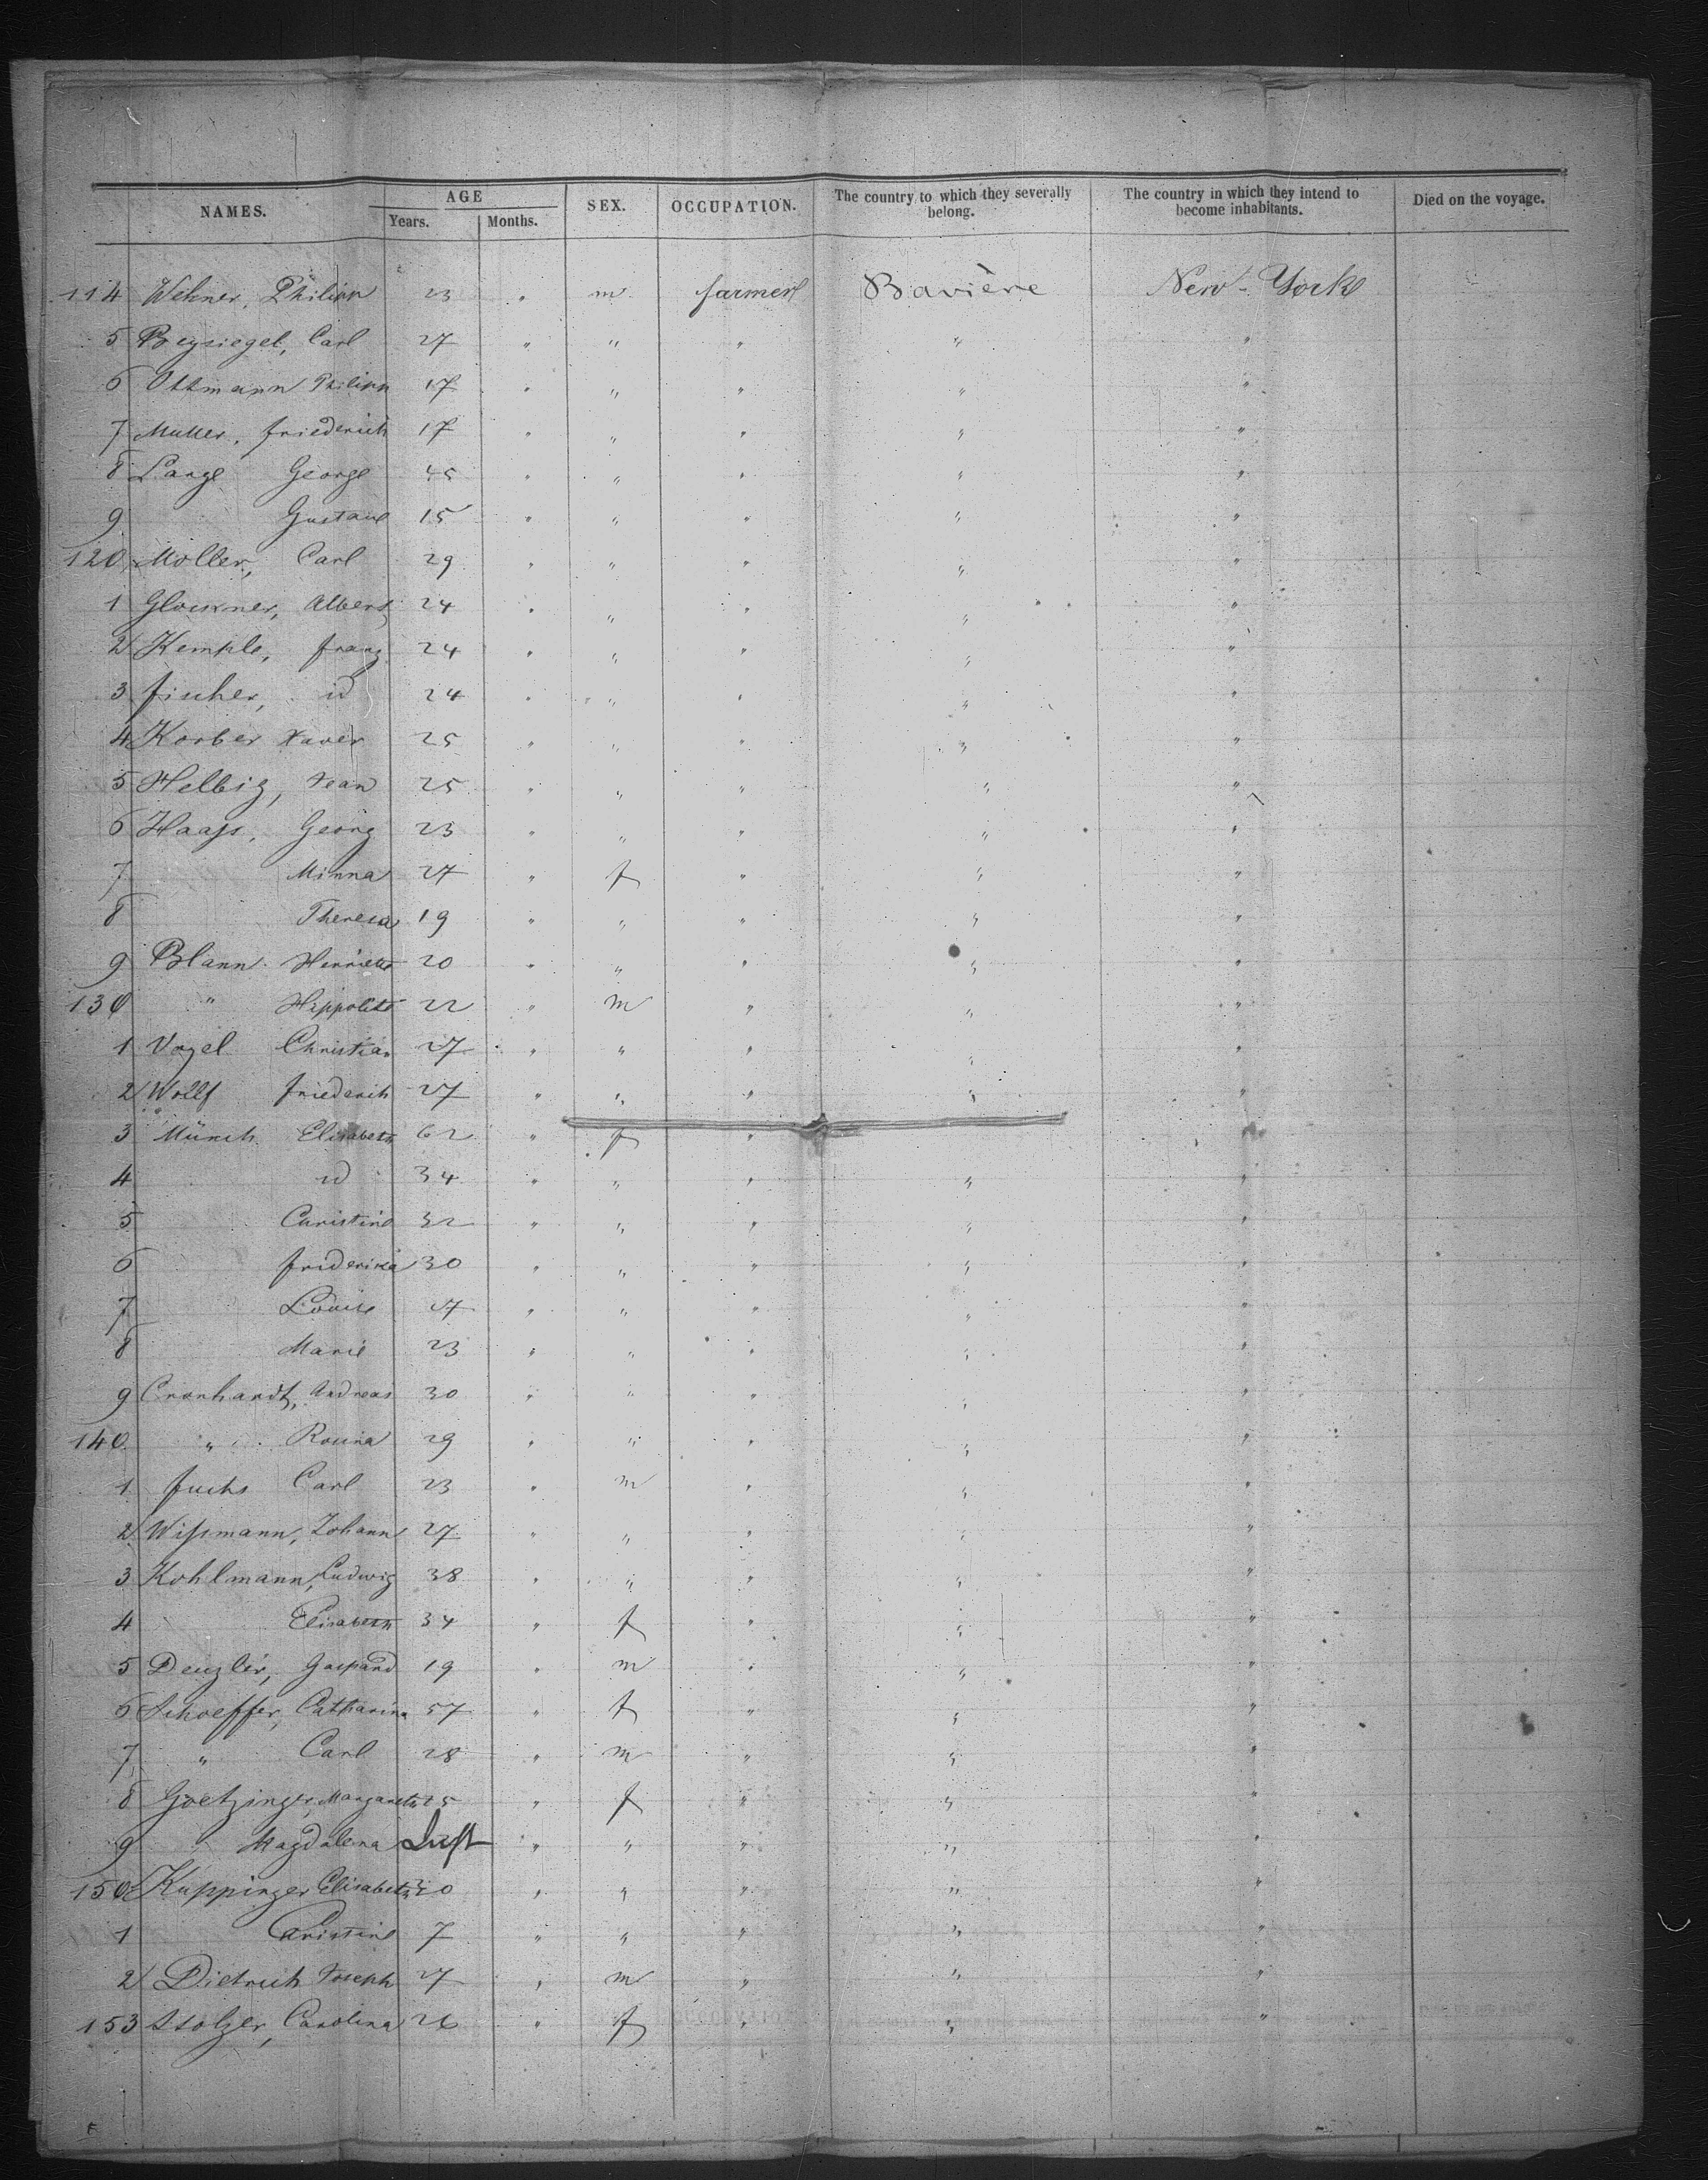 NAMES. AGE SEX. OCCUPATION. The country to which they severally belong. The country in which they intend to become inhabitants. Died on the voyage.
Years. Months.
114 Wehner, Philipp 23 " m farmer Bavière New-York
5 Beysiegel, Carl 27 " " " " "
6 Ottmann Philipp 17 " " " " "
7 Muller, friederich 17 " " " " "
8 Lange George 45 " " " " "
9 Gustave 15 " " " " "
120 Moller, Carl 29 " " " " "
1 Glockner, Albert 24 " " " " "
2 Kemple, franz 24 " " " " "
3 fischer, id 24 " " " " "
4 Korber Xaver 25 " " " " "
5 Helbig, Jean 25 " " " " "
6 Haass, Georg 23 " " " " "
7 Minna 27 " f " " "
8 Theresa 19 " " " " "
9 Blann Henriette 20 " " " " "
130 " Hippolite 22 " m " " "
1 Vogel Christian 27 " " " " "
2 Wolff friederich 27 " " " " "
3 Münch Elisabeth 62 " f " "
4 id 34 " " " " "
5 Christine 32 " " " " "
6 friderika 30 " " " " "
7 Louise " " " " "
8 Marie 23 " " " " "
9 Cronhardt, Andreas 30 " " " " "
140 " Rosina 29 " " " " "
1 fuchs Carl 23 " m " " "
2 Wissmann, Johann 27 " " " " "
3 Kohlmann, Ludwig 38 " " " " "
4 Elisabeth 34 " f " " "
5 Denzler, Gaspard 19 " m " " "
6 Schoeffer, Catharina 57 " f " " "
7 " Carl 28 " m " " "
8 Goetzinger, Margareth 25 " f " " "
9 " Magdalena " " " " "
150 Kuppinger Elisabeth 30 " " " " "
1 Christine 7 " " " " "
2 Dietrich Joseph 27 " m " " "
153 Stolzer, Carolina 26 " f " " "